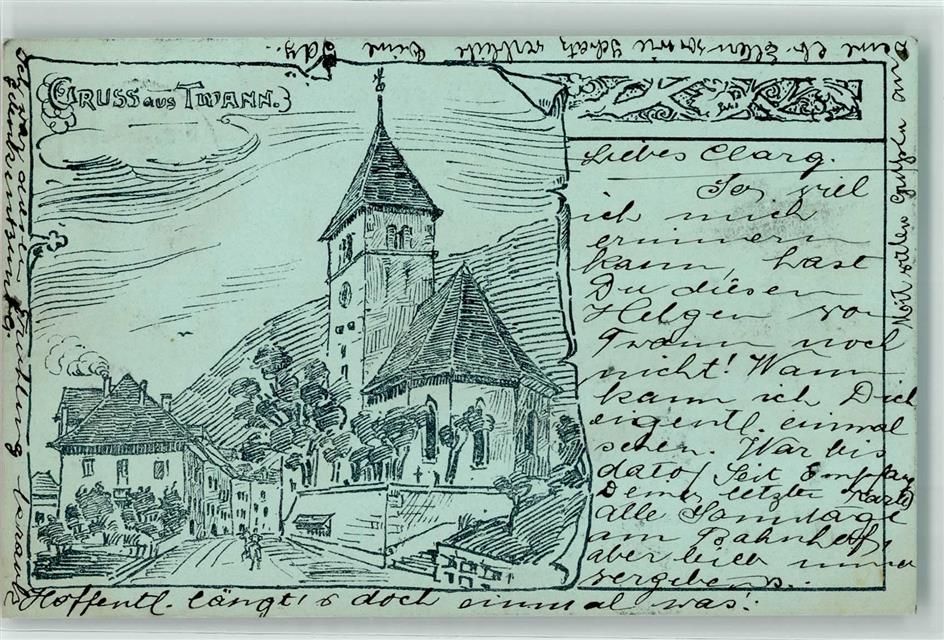 GRUSS aus TWANN.
Liebes Clarg.
So viel
ich mich
erinnern
kann, hast
Du diesen
Helgen von
Twann noch
nicht! Wann
kann ich Dich
eigentl. einmal
sehen. War bis
dato (Seit Empfang
Deiner letzten Karte)
alle Sonntage
am Bahnhof,
aber leider immer
vergebens..
Hoffentl. längt's doch einmal was!
Mit vielen Grüssen an
Deine lb. Eltern sowie